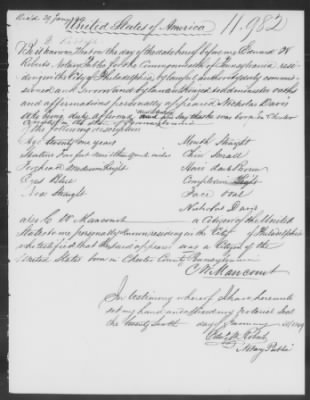 Rec'd 29 Jany
United States of America 11.982
Be it known That on the day of the date hereof before me Edward W
Roberts, Notary Public for the Commonwealth of Pennsylvania resi-
ding in the City of Philadelphia by lawful authority duly commis-
sioned and sworn and by law authorized to administer oaths
and affirmations personally appeared Nicholas Davis
who being duly affirmed did say that he was born in Chester
County in the State of Pennsylvania
of the following description
Age twenty one years Mouth Straight
Stature five feet inches Chin Small
Forehead Medium height Hair dark Brown
Eyes Blue Complexion Light
Nose Straight Face Oval
Nicholas Davis
also C W Mancourt a Citizen of the United
States to me personally known residing in the City of Philadelphia
who testified that the said appearer was a Citizen of the
United States born in Chester County Pennsylvania
C W Mancourt
In testimony whereof I have hereunto
set my hand and affixed my notarial Seal
the twenty sixth day of January
Edw W Roberts
Notary Public